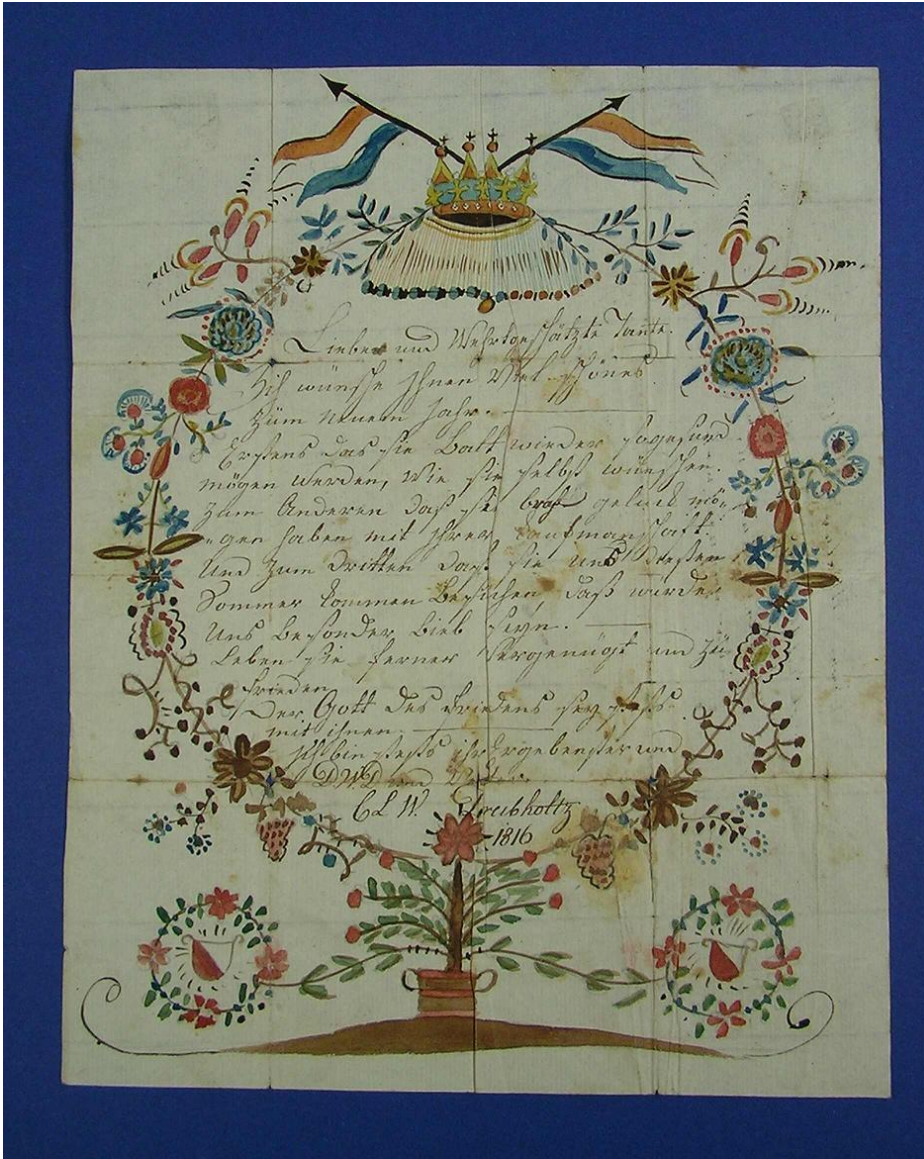 Lieber und Wehrtgeschätzte Tante.
Ich wünsche Ihnen Viel schönes
Züm Neuem Jahr.
Erstens das sie Balt wieder so gesund
mögen werden, wie sie selbst wünschen.
Züm Anderen daß sie braf gelück mö-
-gen haben mit Ihrer Kaufmanschaft
Und Züm dritten daß sie uns diesen
Sommer kommen Besuchen daß wurde
Uns besonder lieb seyn.
Leben sie ferner Vergenügt und Zü
frieden
Der Gott des Friedens sey stets
mit ihnen.
Ich bin stets ihr Ergebenster und
D.W.D und
C L W. Dreibholtz
1816